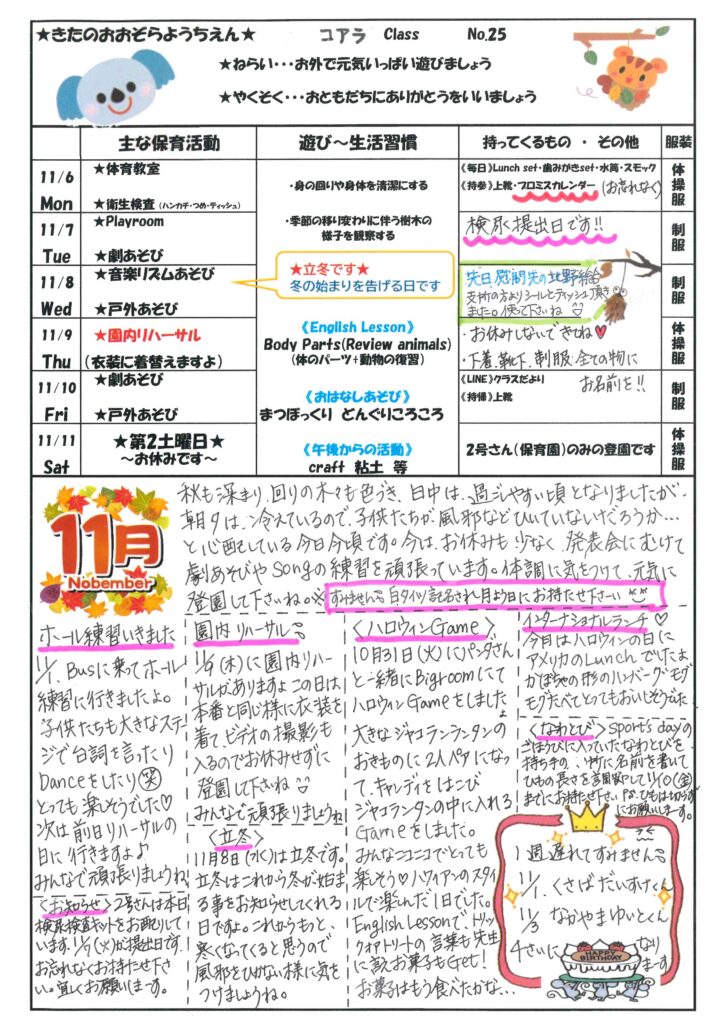 ★きたのおおぞらようちえん★
コアラ Class No.25
★ねらい・・・お外で元気いっぱい遊びましょう
★やくそく・・・おともだちにありがとうをいいましょう
主な保育活動 遊び～生活習慣 持ってくるもの ・ その他 服装
11/6 Mon
★体育教室
★衛生検査(ハンカチ・つめ・ティッシュ)
・身の回りや身体を清潔にする
《毎日》Lunch set・歯みがきset・水筒・スモック
《持参》上靴・プロミスカレンダー (お忘れなく)
体操服
11/7 Tue
★Playroom
★劇あそび
・季節の移り変わりに伴う樹木の
様子を観察する
検尿提出日です!!
制服
11/8 Wed
★音楽リズムあそび
★戸外あそび
★立冬です★
冬の始まりを告げる日です
先日慰問先の北野
支所の方よりシールとティッシュ頂き
ました。使って下さいね
制服
11/9 Thu
★園内リハーサル
(衣装に着替えますよ)
《English Lesson》
Body Parts(Review animals)
(体のパーツ+動物の復習)
・お休みしないできてね♥
・下着、靴下、制服、全ての物に
お名前を!!
体操服
11/10 Fri
★劇あそび
★戸外あそび
《おはなしあそび》
まつぼっくり どんぐりころころ
《LINE》クラスだより
《持帰》上靴
制服
11/11 Sat
★第2土曜日★
～お休みです～
《午後からの活動》
craft 粘土 等
2号さん(保育園)のみの登園です
体操服
11月
Nobember
秋も深まり、回りの木々も色づき、日中は、過ごしやすい頃となりましたが、
朝夕は、冷えているので、子供たちが、風邪などひいていないだろうか…
と心配している今日今頃です。今は、お休みも少なく、発表会にむけて
劇あそびやSongの練習を頑張っています。体調に気をつけて、元気に
登園して下さいね。
※すみません 白タイツ記名され月よう日にお持たせ下さい
ホール練習いきました
11/1、Busに乗ってホール
練習に行きましたよ。
子供たちも大きなステー
ジで台詞を言ったり
Danceをしたり(笑)
とっても楽そうでした♡
次は前日リハーサルの
日に行きますよ♪
みんなで頑張りましょうね
<お知らせ>2号さんは本日
検尿検査キットをお配りして
います。11/7(火)が提出日です。
お忘れなくお持たせ下さ
い。宜しくお願いします。
園内リハーサル
11/9(木)に園内リハー
サルがありますよ この日は
本番と同じ様に衣装を
着て、ビデオの撮影も
入るのでお休みせずに
登園して下さいね
みんなで頑張りましょうね
<立冬>
11月8日(水)は立冬です。
立冬はこれから冬が始ま
る事をお知らせしてくれる
日ですよ。これからもっと、
寒くなってくると思うので
風邪をひかない様に気を
つけましょうね。
<ハロウィンGame>
10月31日(火)にパンダさん
と一緒にBigroomにて
ハロウィンGameをしました
大きなジャコランランタンの
おきものに2人ペアになっ
て、キャンディをはこび
ジャコランタンの中に入れる
Gameをしました。
みんなニコニコでとっても
楽しそう♡ハワイアンのスタイ
ルで楽んだ1日でした。
English Lessonで、トリック
クォアトリートの言葉も先生
に言えお菓子もGet!
お菓子はもう食べたかな…
インターナショナルランチ♡
今月はハロウィンの日に
アメリカのLunchでしたよ
かぼちゃの形のハンバーグ、モグ
モグたべてとってもおいしそうでした
<なわとび>sports dayの
ごほうびに入っていたなわとびを、
持ち手の、ヶ所に名前を書いて
ひもの長さを調節して11/10(金)
までにお持たせ下さい。
にお願いします。
1週遅れてすみません
11/1、くさばだいすけくん
11/3 なかやまゆいとくん
4さいに なります
HAPPY BIRTHDAY